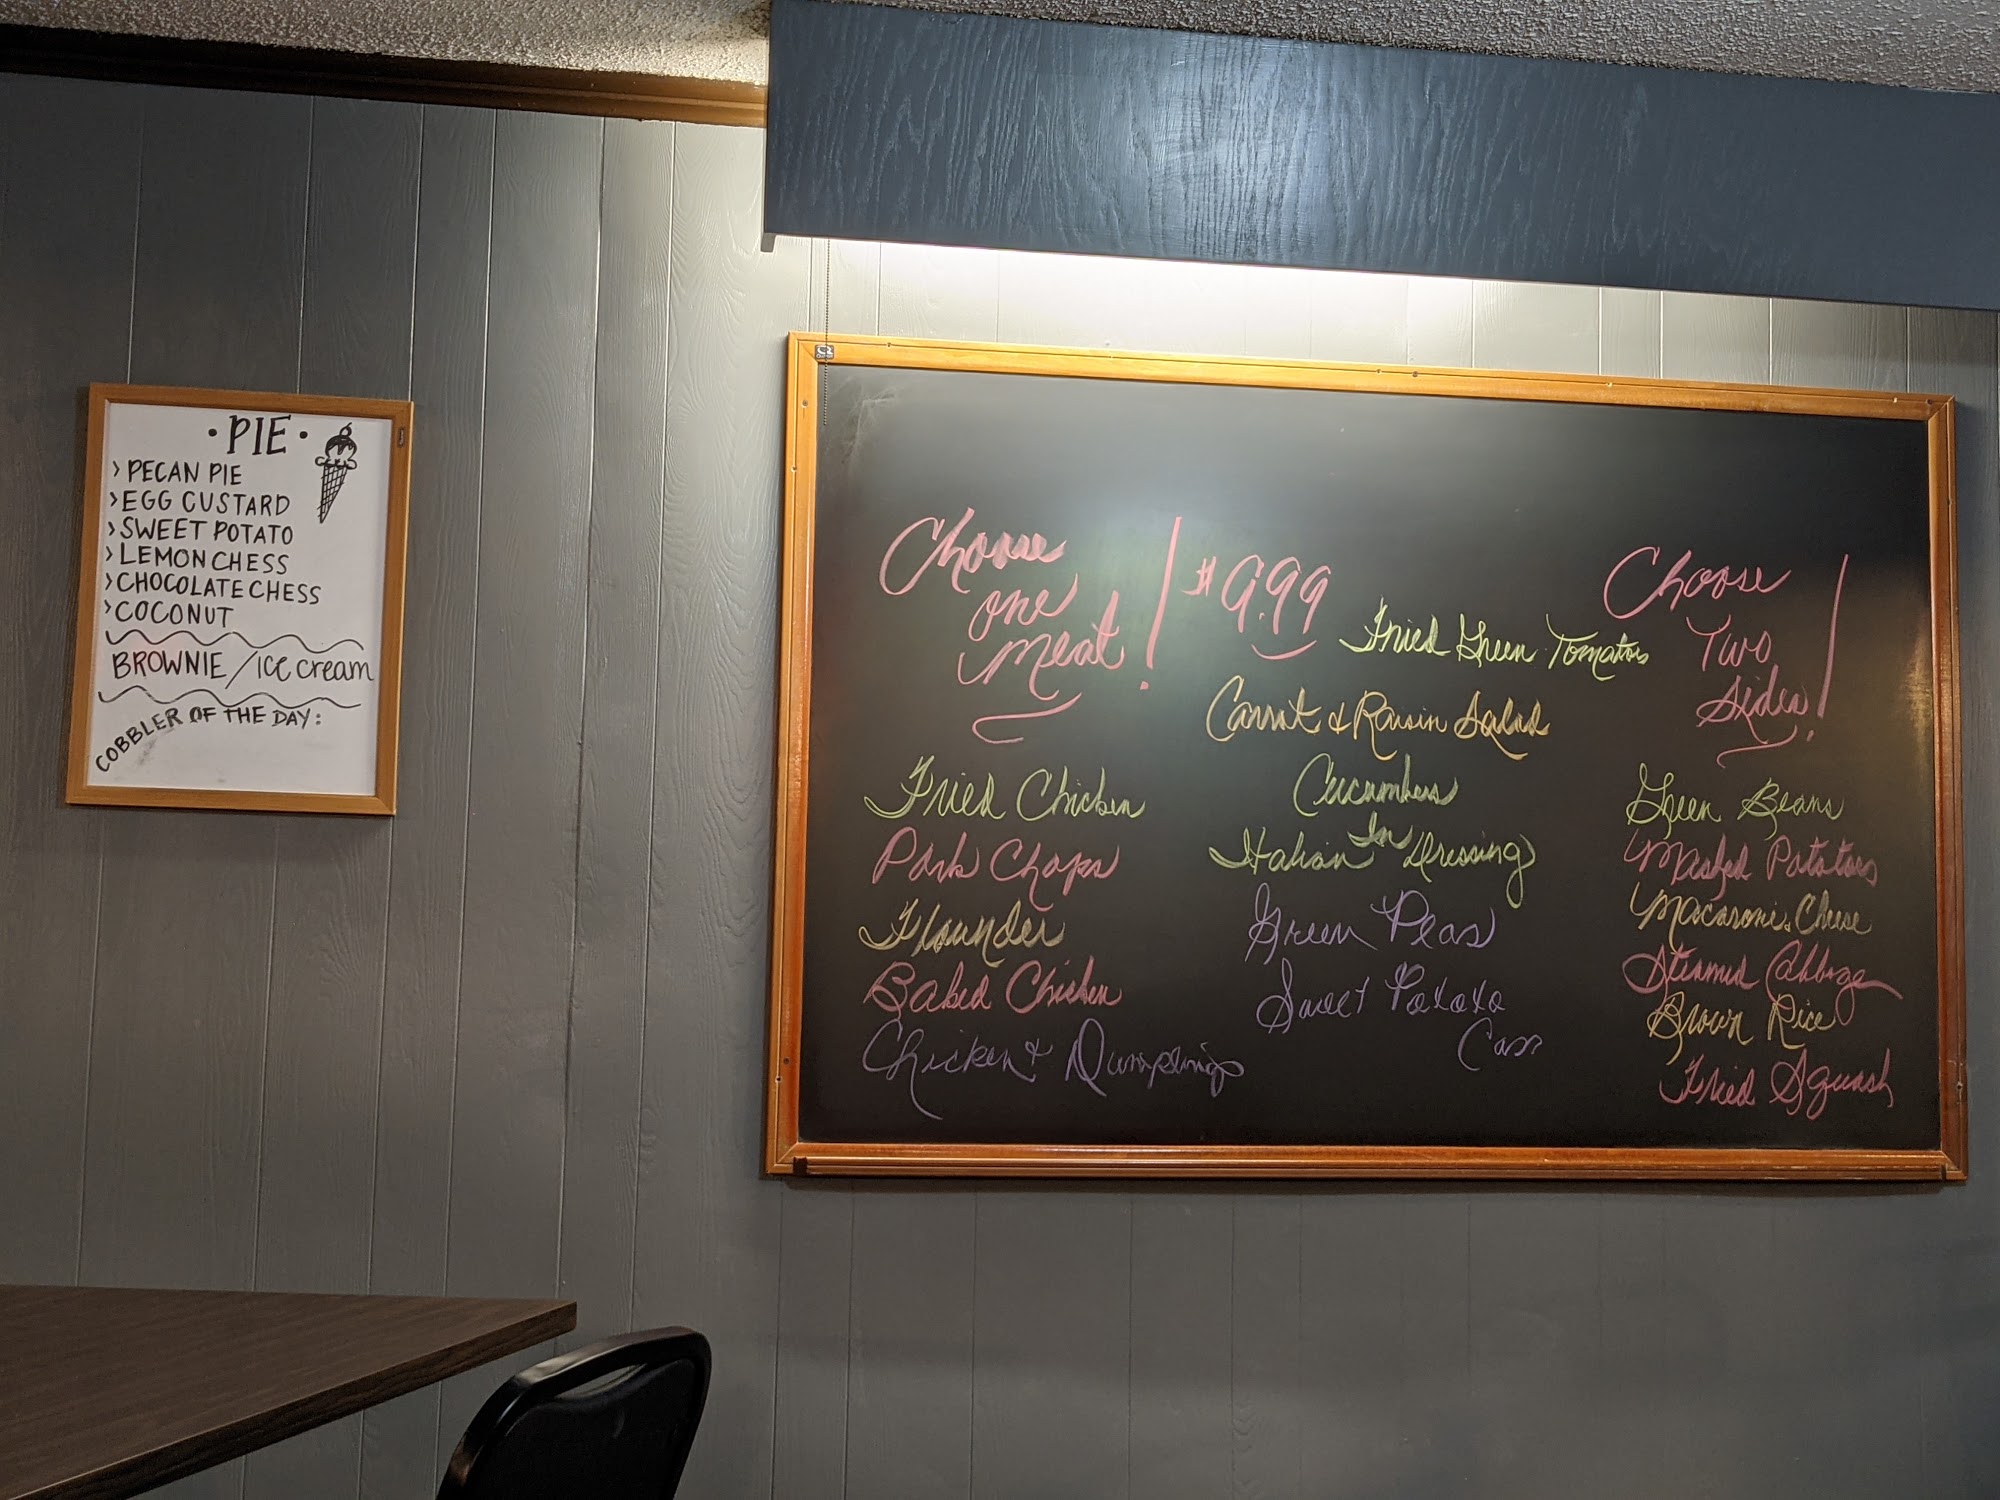 · PIE ·
> PECAN PIE
> EGG CUSTARD
> SWEET POTATO
> LEMON CHESS
> CHOCOLATE CHESS
> COCONUT
BROWNIE / ICE cream
COBBLER OF THE DAY:
Choose
one
meat!
$9.99
Fried Chicken
Pork Chops
Flounder
Baked Chicken
Chicken & Dumplings
Fried Green Tomatoes
Carrot & Raisin Salad
Cucumbers
In
Italian Dressing
Green Peas
Sweet Potato
Cass
Choose
Two
Sides!
Green Beans
Mashed Potatoes
Macaroni & Cheese
Steamed Cabbage
Brown Rice
Fried Squash